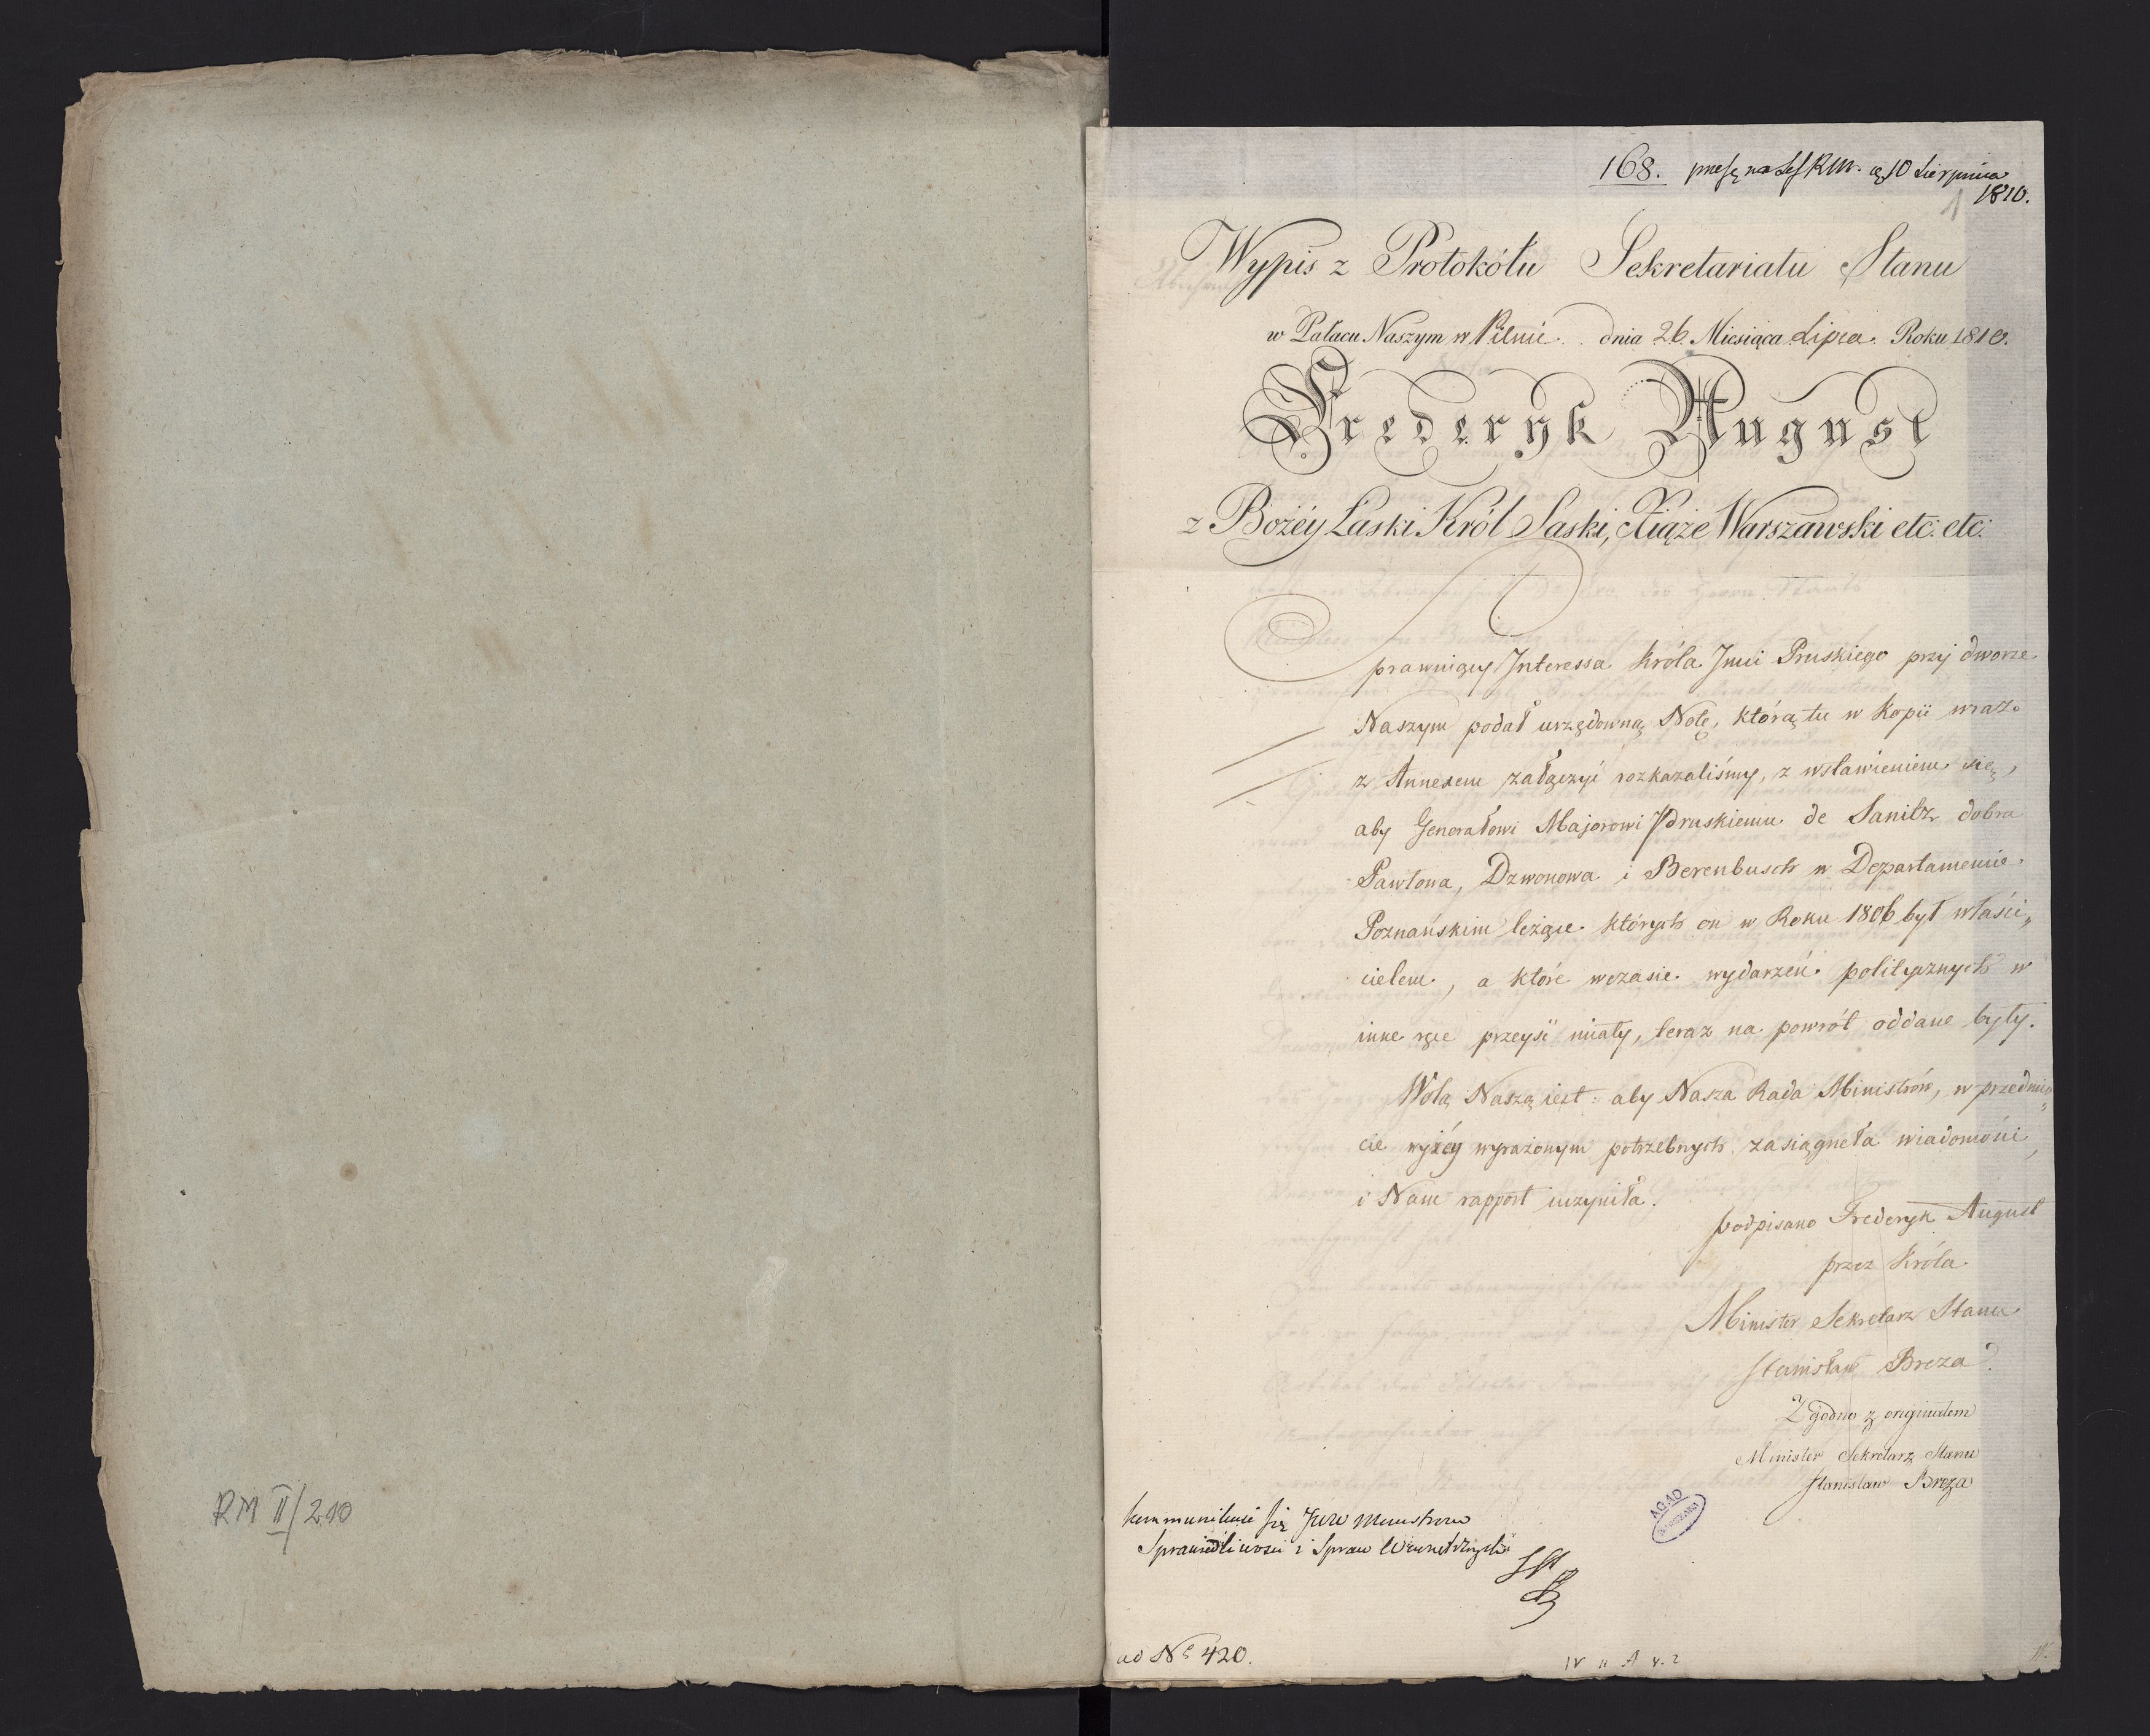 RM II/210
168. na Ses RM. 10 Sierpnia
1810.
1
Wypis z Protokółu Sekretariatu Stanu
w Pałacu Naszym w Pilnic. dnia 26. Miesiąca Lipca. Roku 1810.
Frederyk August
z Bożéy Łaski Król Saski, Xiąże Warszawski etc: etc:
Sprawuiący Interessa Króla Jmci Pruskiego przy dworze
Naszym podał urzędowną Notę, którą tu w kopii wraz
z Annexem załączyć rozkazaliśmy, z wstawieniem się,
aby Generałowi Majorowi Pruskiemu de Sanitz dobra
Pawłowa, Dzwonowa i Berenbusch w Departamencie
Poznańskim leżące których on w Roku 1806 był właści„
cielem, a które wczasie wydarzeń politycznych w
inne ręce przeyść miały, teraz na powrót oddane były.
Wolą Naszą iest: aby Nasza Rada Ministrów, w przedmio„
cie wyżéy wyrażonym potrzebnych zasiągneła wiadomości,
i Nam rapport uczyniła.
podpisano Frederyk August
przez Króla
Minister Sekretarz Stanu
Stanisław Breza
Zgodno z originałem
Minister Sekretarz Stanu
Stanisław Breza
AGAD
WARSZAWA
kommunikuie się JWW Ministrom
Sprawiedliwości i Spraw Wewnętrznych
ad Nr 420.